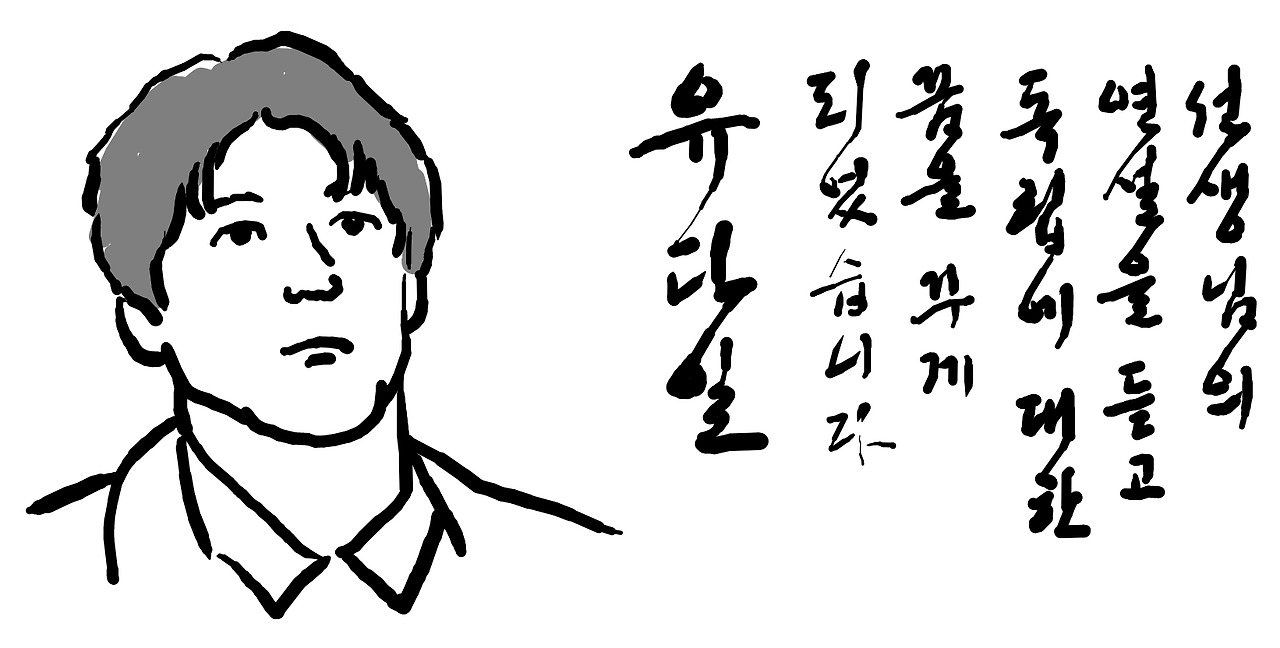 선생님의
연설을 듣고
독립에 대한
꿈을 꾸게
되었습니다
유달일